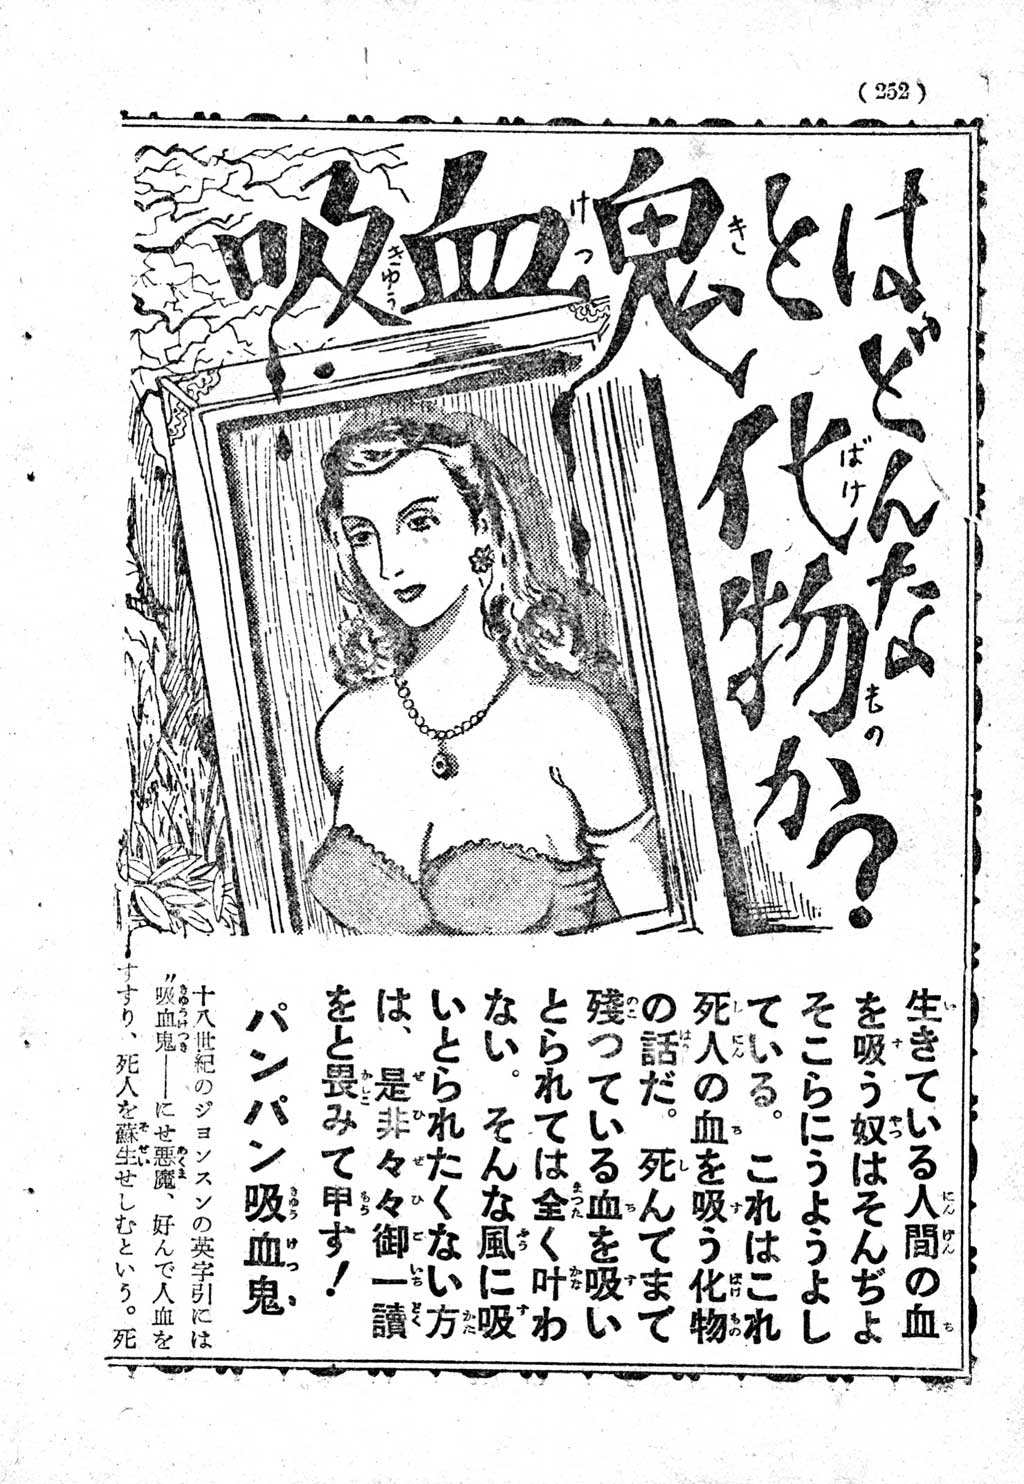 (252)
吸血鬼とは
どんな
化物か？
生きている人間の血
を吸う奴はそんぢよ
そこらにうようよし
ている。これはこれ
死人の血を吸う化物
の話だ。死んでまで
残つている血を吸い
とられては全く叶わ
ない。そんな風に吸
いとられたくない方
は、是非々々御一讀
をと畏みて申す！
パンパン吸血鬼
十八世紀のジョンスンの英字引には
〝吸血鬼――にせ悪魔、好んで人血を
すすり、死人を蘇生せしむという。死